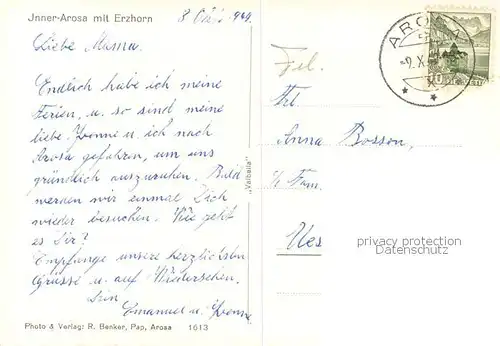 Jnner-Arosa mit Erzhorn
8 Okt. 1944.
Liebe Mama.
Endlich habe ich meine
Ferien, u. so sind meine
liebe Yvonne u. ich nach
Arosa gefahren, um uns
gründlich auszuruhen. Bald
werden wir einmal Dich
wieder besuchen. Wie geht
es Dir?
Empfange unsere herzlichsten
Grüsse u. auf Wiedersehen.
Dein
Emanuel u. Yvonne
Photo & Verlag: R. Benker, Pap, Arosa 1613
„Valbella"
AROSA
-9.X.
10
Frl.
Anna Bosson,
% Fam.
Ues
privacy protection
Datenschutz